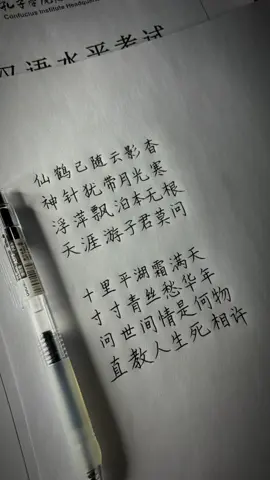 孔子学院
Confucius Institute Headquarters
汉语水平考试
仙鹤已随云影杳
神针犹带月光寒
浮萍飘泊本无根
天涯游子君莫问
十里平湖霜满天
寸寸青丝愁华年
问世间情是何物
直教人生死相许